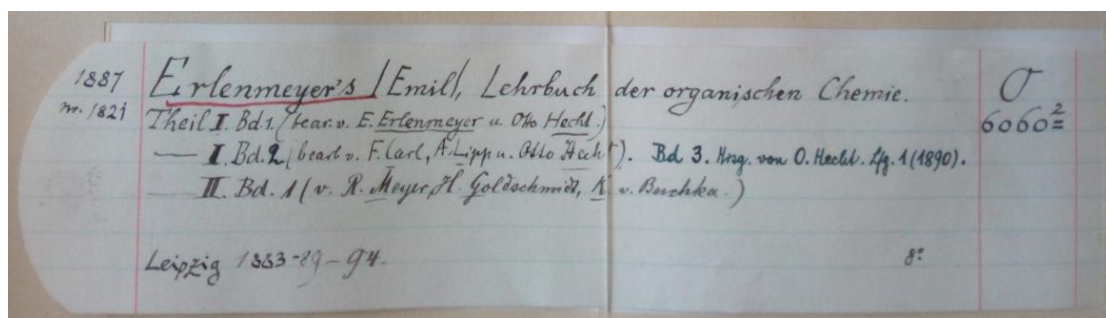 1887 Erlenmeyer's (Emil), Lehrbuch der organischen Chemie. O
nr. 1821 Theil I. Bd. 1. (bear. v. E. Erlenmeyer u. Otto Hecht.) 6060²
— I. Bd. 2 (bearb v. F. Carl, A. Lipp u. Otto Hecht). Bd 3. Hrsg. von O. Hecht. Lfg. 1 (1890).
— II. Bd. 1 (v. R. Meyer, H. Goldschmidt, K. v. Buchka.)
Leipzig 1883-89-94. 8°